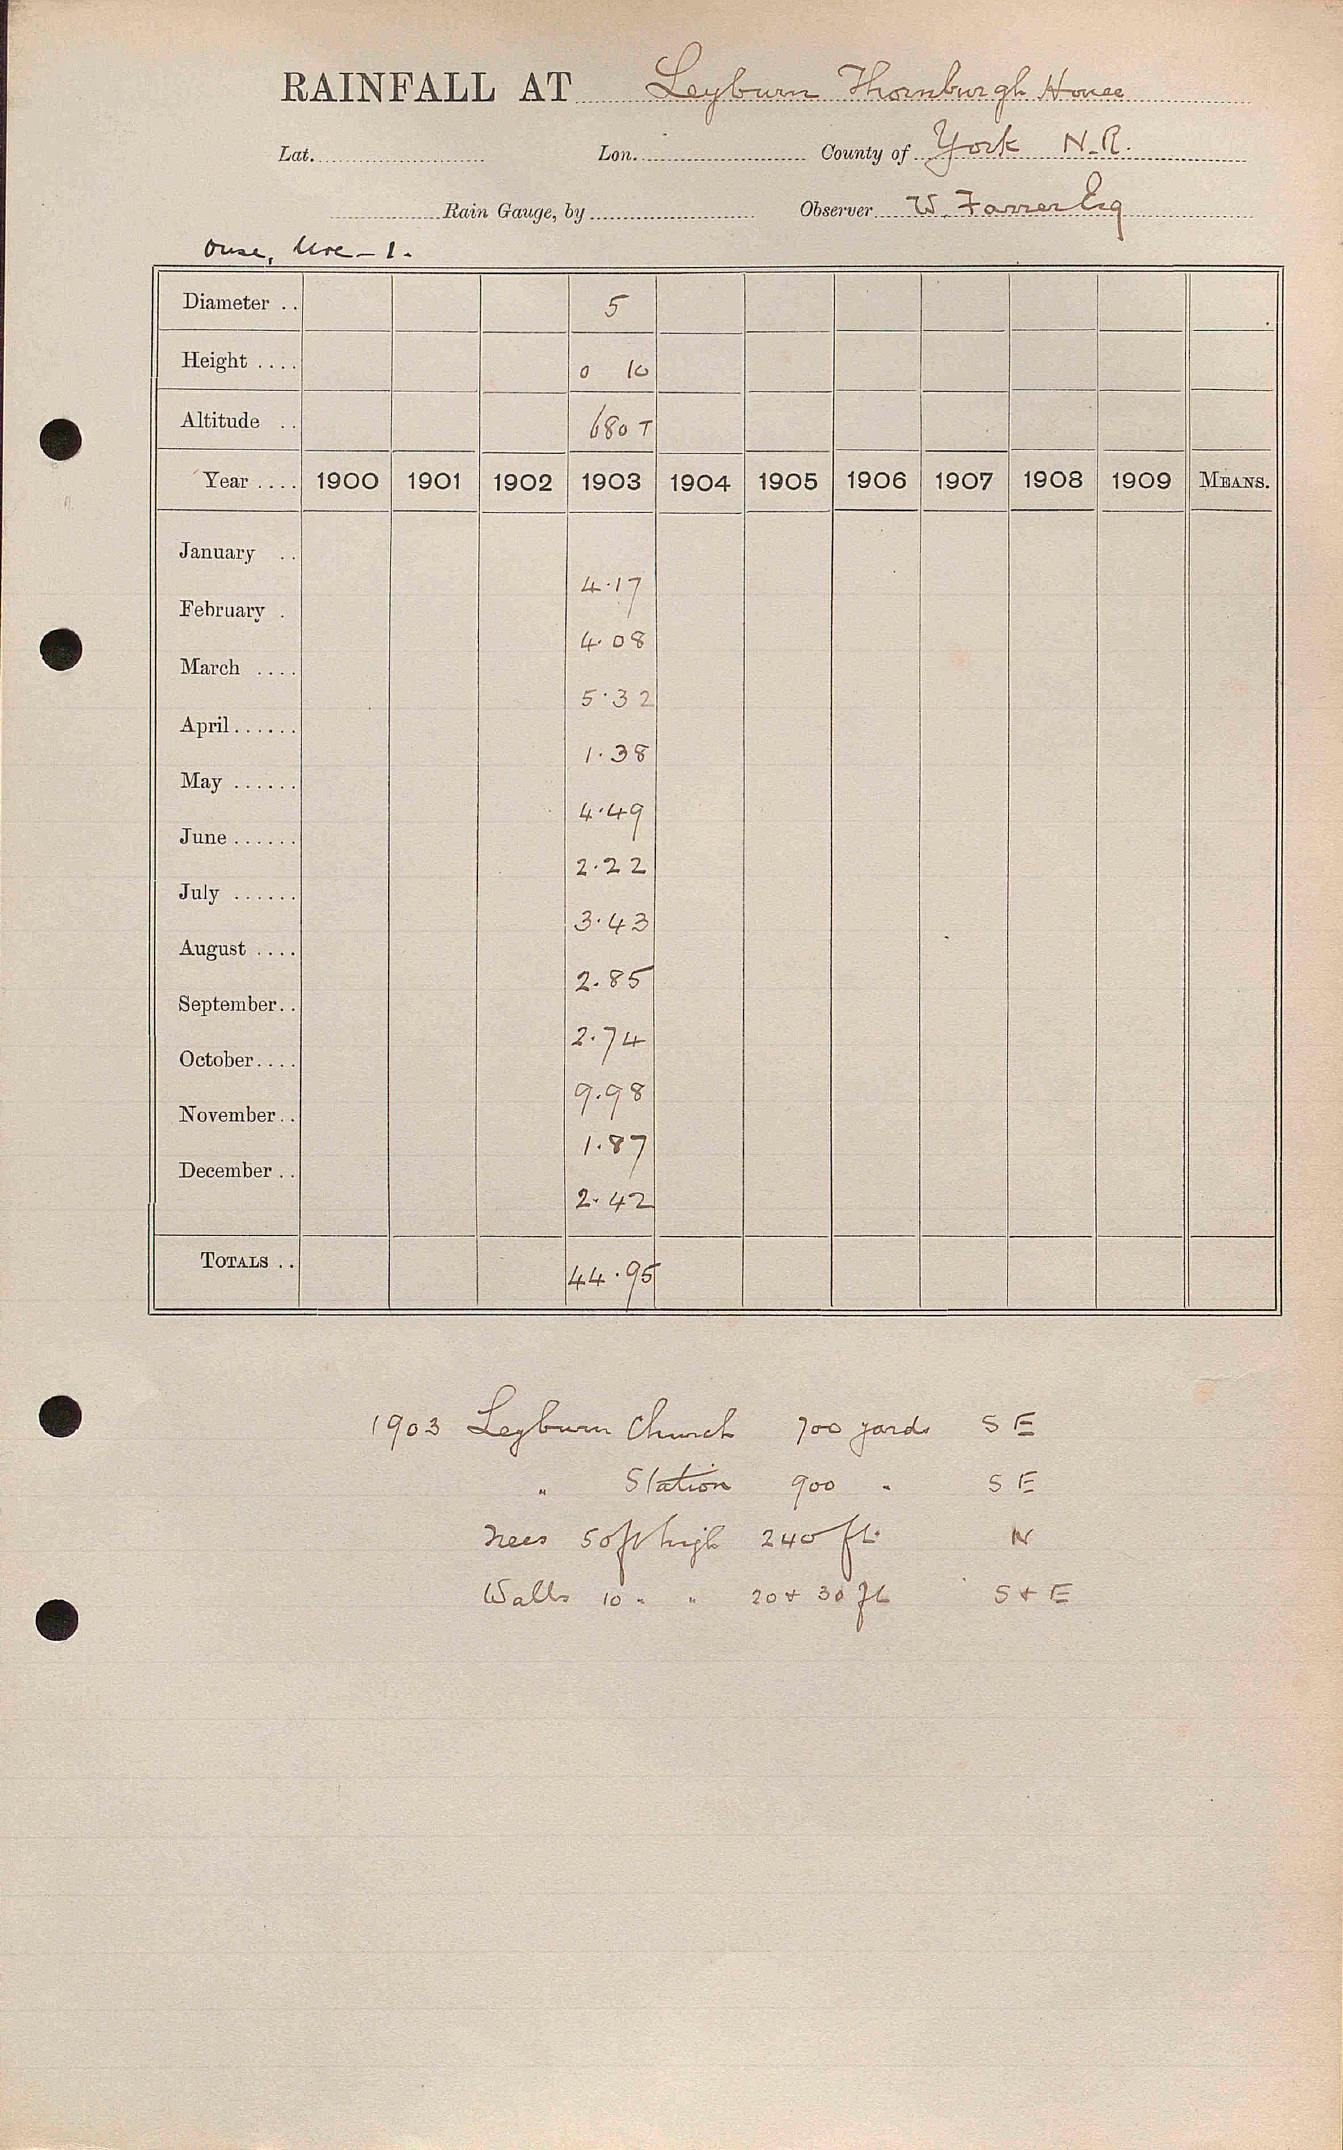 RAINFALL AT Leyburn Thornburgh House
Lat. Lon. County of York N.R.
Rain Gauge, by Observer W. Farrer Esq
Ouse, Ure - 1.
Diameter .. 5
Height .... 0 10
Altitude .. 680 T
Year .... 1900 1901 1902 1903 1904 1905 1906 1907 1908 1909 MEANS.
January .. 4.17
February . 4.08
March .... 5.32
April ...... 1.38
May ...... 4.49
June ...... 2.22
July ...... 3.43
August .... 2.85
September .. 2.74
October .... 9.98
November .. 1.87
December .. 2.42
TOTALS .. 44.95
1903 Leyburn Church 700 yards S E
" Station 900 " S E
Trees 50 ft high 240 ft. N
Walls 10 " " 20 + 30 ft S + E